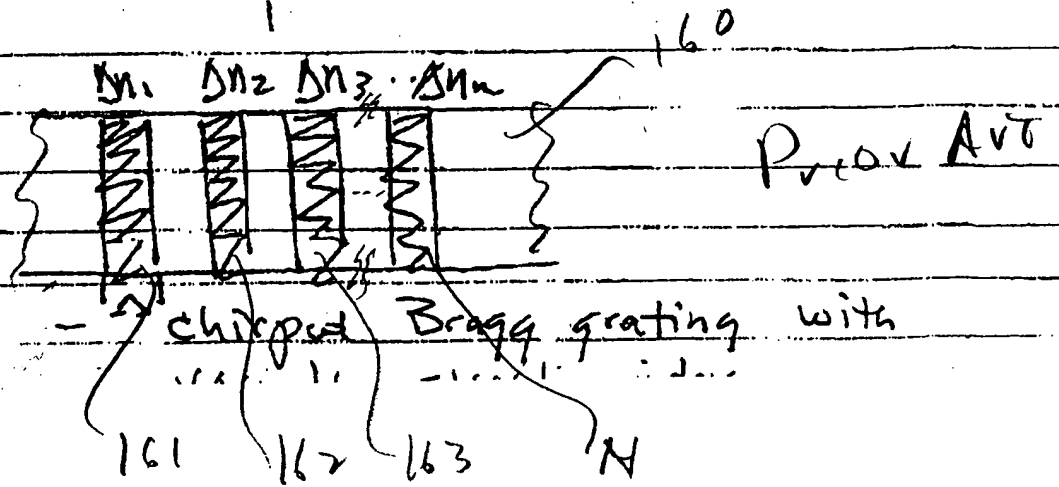 160
Δn₁ Δn₂ Δn₃ ... Δnₙ
Prior Art
- chirped Bragg grating with
161 162 163 N